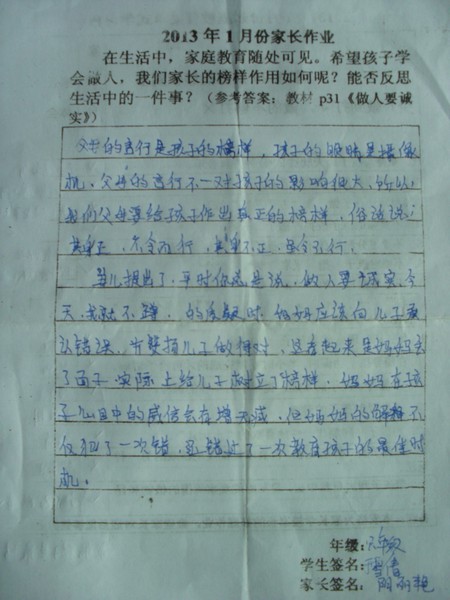 2013年1月份家长作业
在生活中，家庭教育随处可见。希望孩子学
会融入，我们家长的榜样作用如何呢？能否反思
生活中的一件事？（参考答案：教材 p31《做人要诚
实》）
父母的言行是孩子的榜样，孩子的眼睛是摄像
机，父母的言行不一对孩子的影响很大，所以
我们父母要给孩子作出真正的榜样，俗话说：
其身正，不令而行，其身不正，虽令不行。
当儿提出了，平时你总是说，做人要诚实，今
天，我就不 的质疑时，妈妈应该向儿子承
认错误，并赞扬儿子做得对，这看起来是妈妈失
了面子，实际上给儿子树立了榜样，妈妈在孩
子心目中的威信会有增无减，但妈妈的解释不
仅犯了一次错，还错过了一次教育孩子的最佳时
机。
年级：
学生签名：
家长签名：